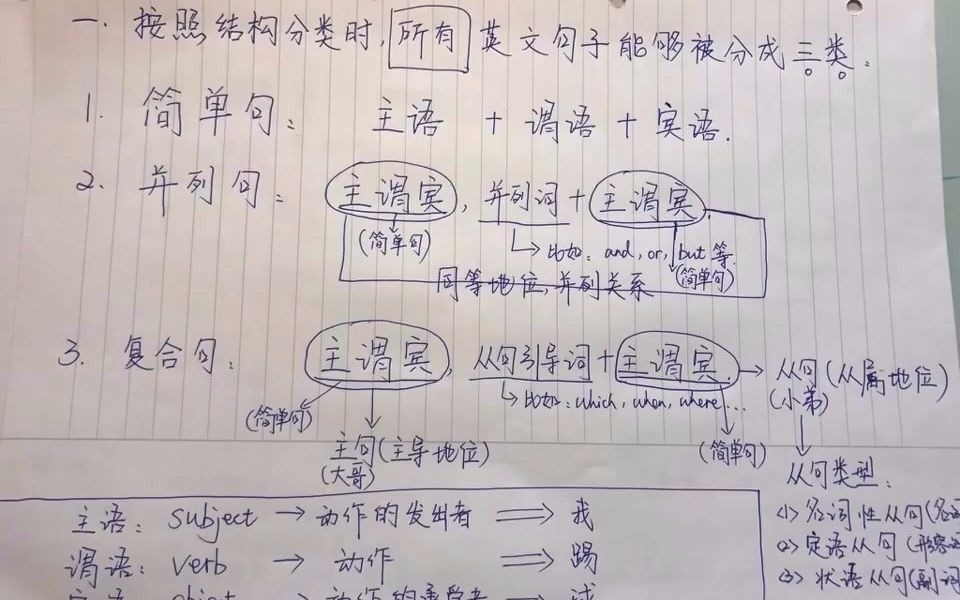 一. 按照结构分类时, 所有 英文句子能够被分成三类.
1. 简单句: 主语 + 谓语 + 宾语.
2. 并列句: 主谓宾, 并列词 + 主谓宾.
(简单句) 比如: and, or, but 等. (简单句)
同等地位, 并列关系
3. 复合句: 主谓宾, 从句引导词 + 主谓宾. → 从句(从属地位)
(小弟)
→ 比如: which, when, where...
(简单句) 主句(主导地位) (简单句)
(大哥)
从句类型:
(1) 名词性从句(名词
(2) 定语从句(形容词
(3) 状语从句(副词
主语: subject → 动作的发出者 ⇒ 我
谓语: verb → 动作 ⇒ 踢
宾语: object → 动作的承受者 ⇒ 球